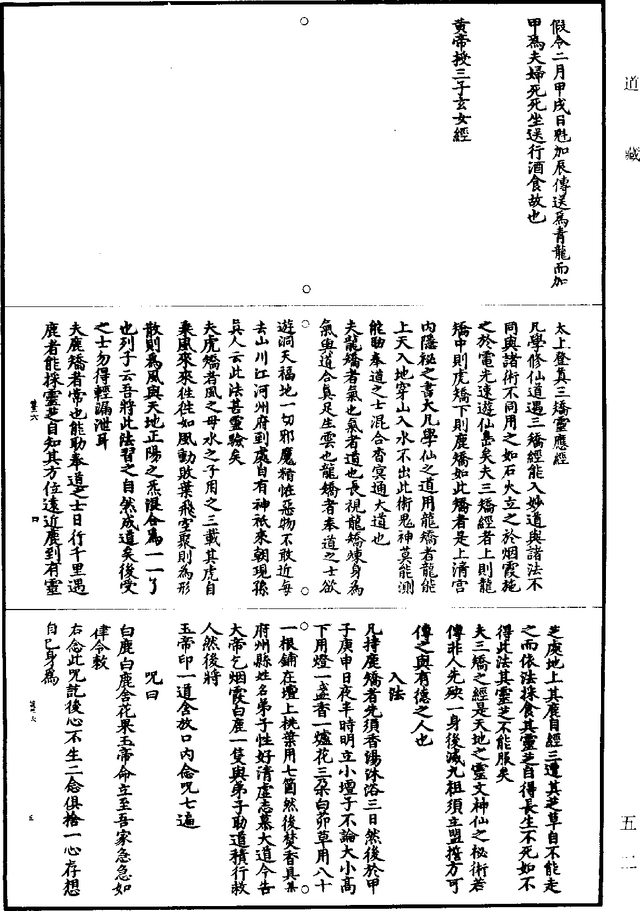 道藏
假令二月甲戌日魁加辰傳送為青龍而加
甲為夫婦死死坐送行酒食故也
黃帝授三子玄女經
太上登真三矯靈應經
凡學修仙道遇三矯經能入妙道與諸法不
同與諸術不同用之如石火立之於烟霞施
之於電光遠遊仙島矣夫三矯經者上則龍
矯中則虎矯下則鹿矯如此矯者是上清宫
内隱秘之書大凡學仙之道用龍矯者龍能
上天入地穿山入水不出此術鬼神莫能測
能助奉道之士混合杳冥通大道也
夫龍矯者氣也氣者道也長視龍矯煉身為
氣與道合真足生雲也龍矯者奉道之士欲
遊洞天福地一切邪魔精怪惡物不敢近每
去山川江河州府到處自有神祇來朝現孫
真人云此法甚靈驗矣
夫虎矯者風之母水之子用之三載其虎自
乘風來來往往如風動敗葉飛空聚則為形
散則為風與天地正陽之炁混合為一一了
也列子云吾將此法習之自然成道矣後受
之士勿得輕漏泄耳
夫鹿矯者常也能助奉道之士日行千里遇
鹿者能採靈芝自知其方位遠近鹿到有靈
四
芝處地上其鹿自經三遭其芝草自不能走
之而依法採食其靈芝自得長生不死如不
得此法其靈芝不能服矣
夫三矯之經是天地之靈文神仙之秘術若
傳非人先殃一身後滅九祖須立盟誓方可
傳之與有德之人也
入法
凡持鹿矯者先須香湯沐浴三日然後於甲
子庚申日夜半時明立小壇子不論大小高
下用燈一盞香一爐花三朵白茆草用八十
一根鋪在壇上桃葉用七箇然後焚香具某
府州縣姓名弟子性好清虛志慕大道今告
大帝乞烟霞白鹿一隻與弟子助道積行救
人然後將
玉帝印一道含放口内念呪七遍
呪曰
白鹿白鹿含花果玉帝命立至吾家急急如
律令敕
右念此呪訖後心不生二念俱捨一心存想
自己身為
五
五 二